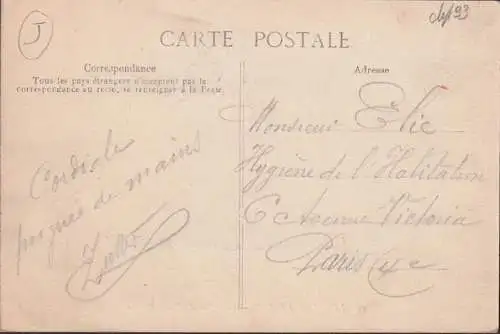 J
CARTE POSTALE
Correspondance
Tous les pays étrangers n'acceptent pas la
correspondance au recto, se renseigner à la Poste.
Adresse
Cordiale
poignée de mains
Monsieur Elie
Hygiène de l'Habitation
6 Avenue Victoria
Paris 4e